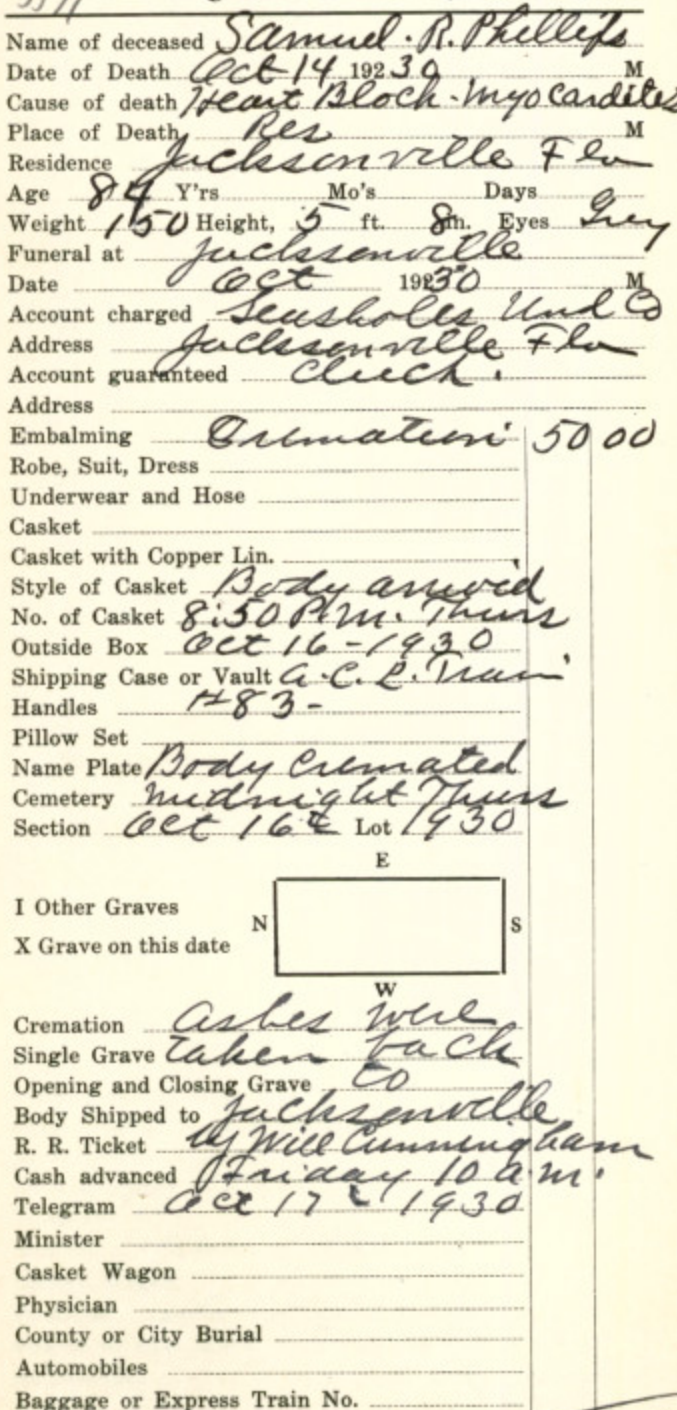 Name of deceased Samuel. R. Phillips
Date of Death Oct 14 19230 M
Cause of death Heart Block-Myocardites
Place of Death Res M
Residence Jacksonville Fla
Age 84 Y'rs Mo's Days
Weight 150 Height, 5 ft. 8 in. Eyes Grey
Funeral at Jacksonville
Date Oct 19230 M
Account charged Und Co
Address Jacksonville Fla
Account guaranteed Check.
Address
Embalming Cremation 50 00
Robe, Suit, Dress
Underwear and Hose
Casket
Casket with Copper Lin.
Style of Casket Body arrived
No. of Casket 8:50 P.M. Thurs
Outside Box Oct 16-1930
Shipping Case or Vault A.C.L. Train
Handles #83-
Pillow Set
Name Plate Body Cremated
Cemetery Midnight Thurs
Section Oct 16th Lot 1930
E
I Other Graves
N S
X Grave on this date
W
Cremation Ashes were
Single Grave taken back
Opening and Closing Grave to
Body Shipped to Jacksonville
R. R. Ticket by Will Cunningham
Cash advanced Friday 10 a.m.
Telegram Oct 17th 1930
Minister
Casket Wagon
Physician
County or City Burial
Automobiles
Baggage or Express Train No.